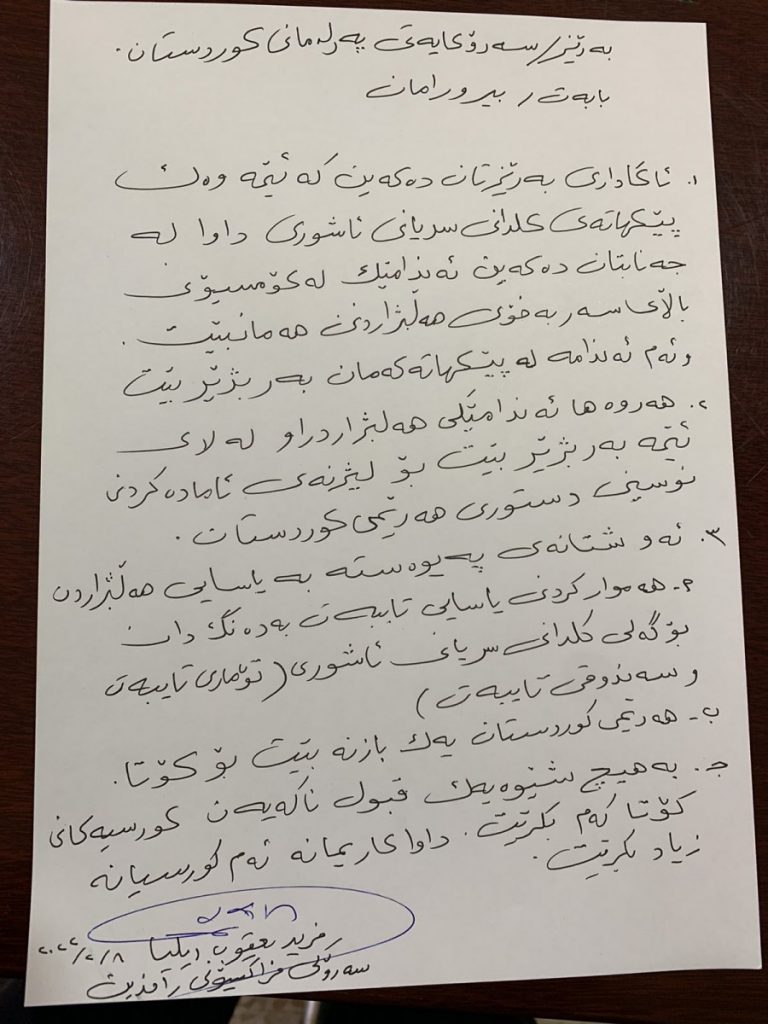 بەڕێز/ سەرۆکایەتی پەرلەمانی کوردستان.
بابەت/ بیرورامان
١. ئاگاداری بەڕێزتان دەکەین کە ئێمە وەک
پێکهاتەی کلدانی سریانی ئاشوری داوا لە
جەنابتان دەکەین ئەندامێک لە کۆمسیۆی
باڵای سەربەخۆی هەڵبژاردنی هەمانبێت.
وئەم ئەندامە لە پێکهاتەکەمان بەربژێر بێت
٢. هەروەها ئەندامێکی هەلبژاردراو لە لای
ئێمە بەربژێر بێت بۆ لیژنەی ئامادەکردنی
نوسینی دستوری هەرێمی کوردستان.
٣. ئەو شتانەی پەیوەستە بە یاسایی هەڵبژاردن
أ- هەموارکردنی یاسایی تایبەت بەدەنگ دان
بۆ گەلی کلدانی سریانی ئاشوری (تۆماری تایبەت
و سەندوقی تایبەت)
ب- هەرێمی کوردستان یەک بازنە بێت بۆ کۆتا.
ج. بەهیچ شێوەیەک قبول ناکەیەن کورسیەکانی
کۆتا کەم بکرێت. داواکاریمانە ئەم کورسیانە
زیاد بکرێت.
فرید یعقوب ایلیا ٢٠٢٢/٢/٨
سەرۆکی فراکسیۆنی رافدین